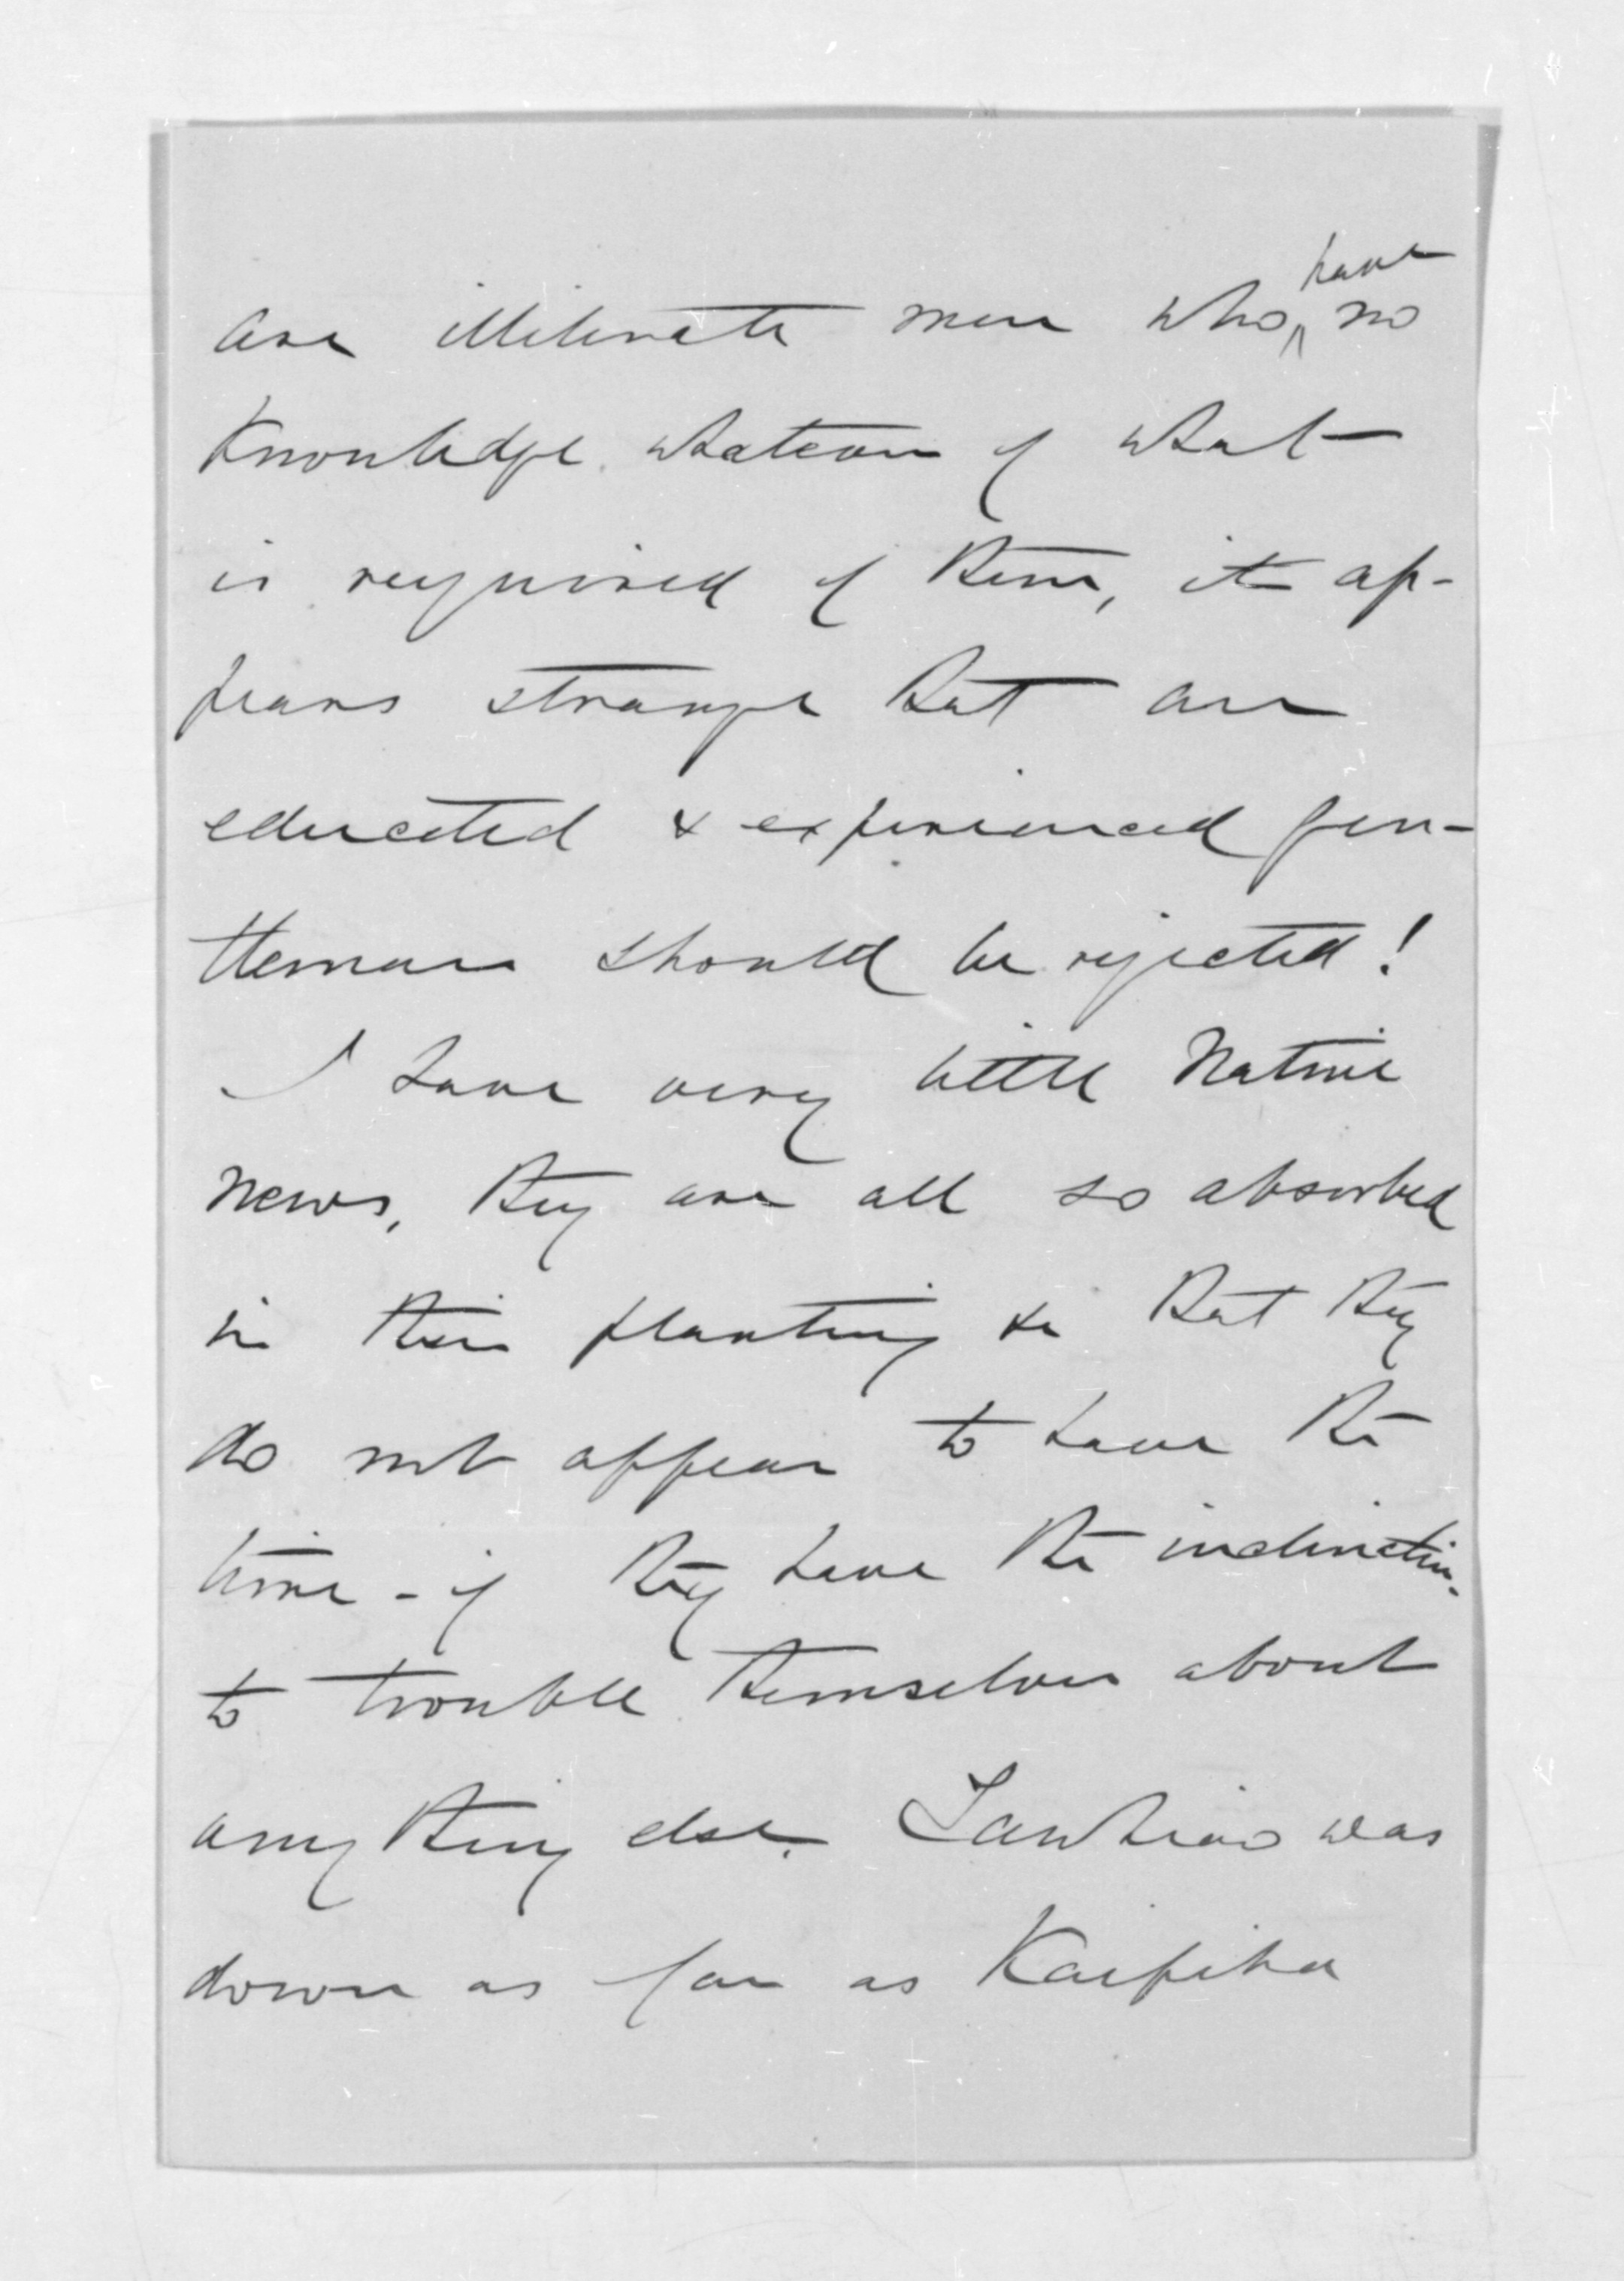 are illiterate men who have no
knowledge whatever of what
is required of them, it ap-
pears strange that an
educated & experienced gen-
tleman should be rejected!
I have very little Native
news, they are all so absorbed
in their planting &c that they
do not appear to have the
time - if they have the inclination -
to trouble themselves about
any thing else. Tawhiao was
down as far as Kaipiha